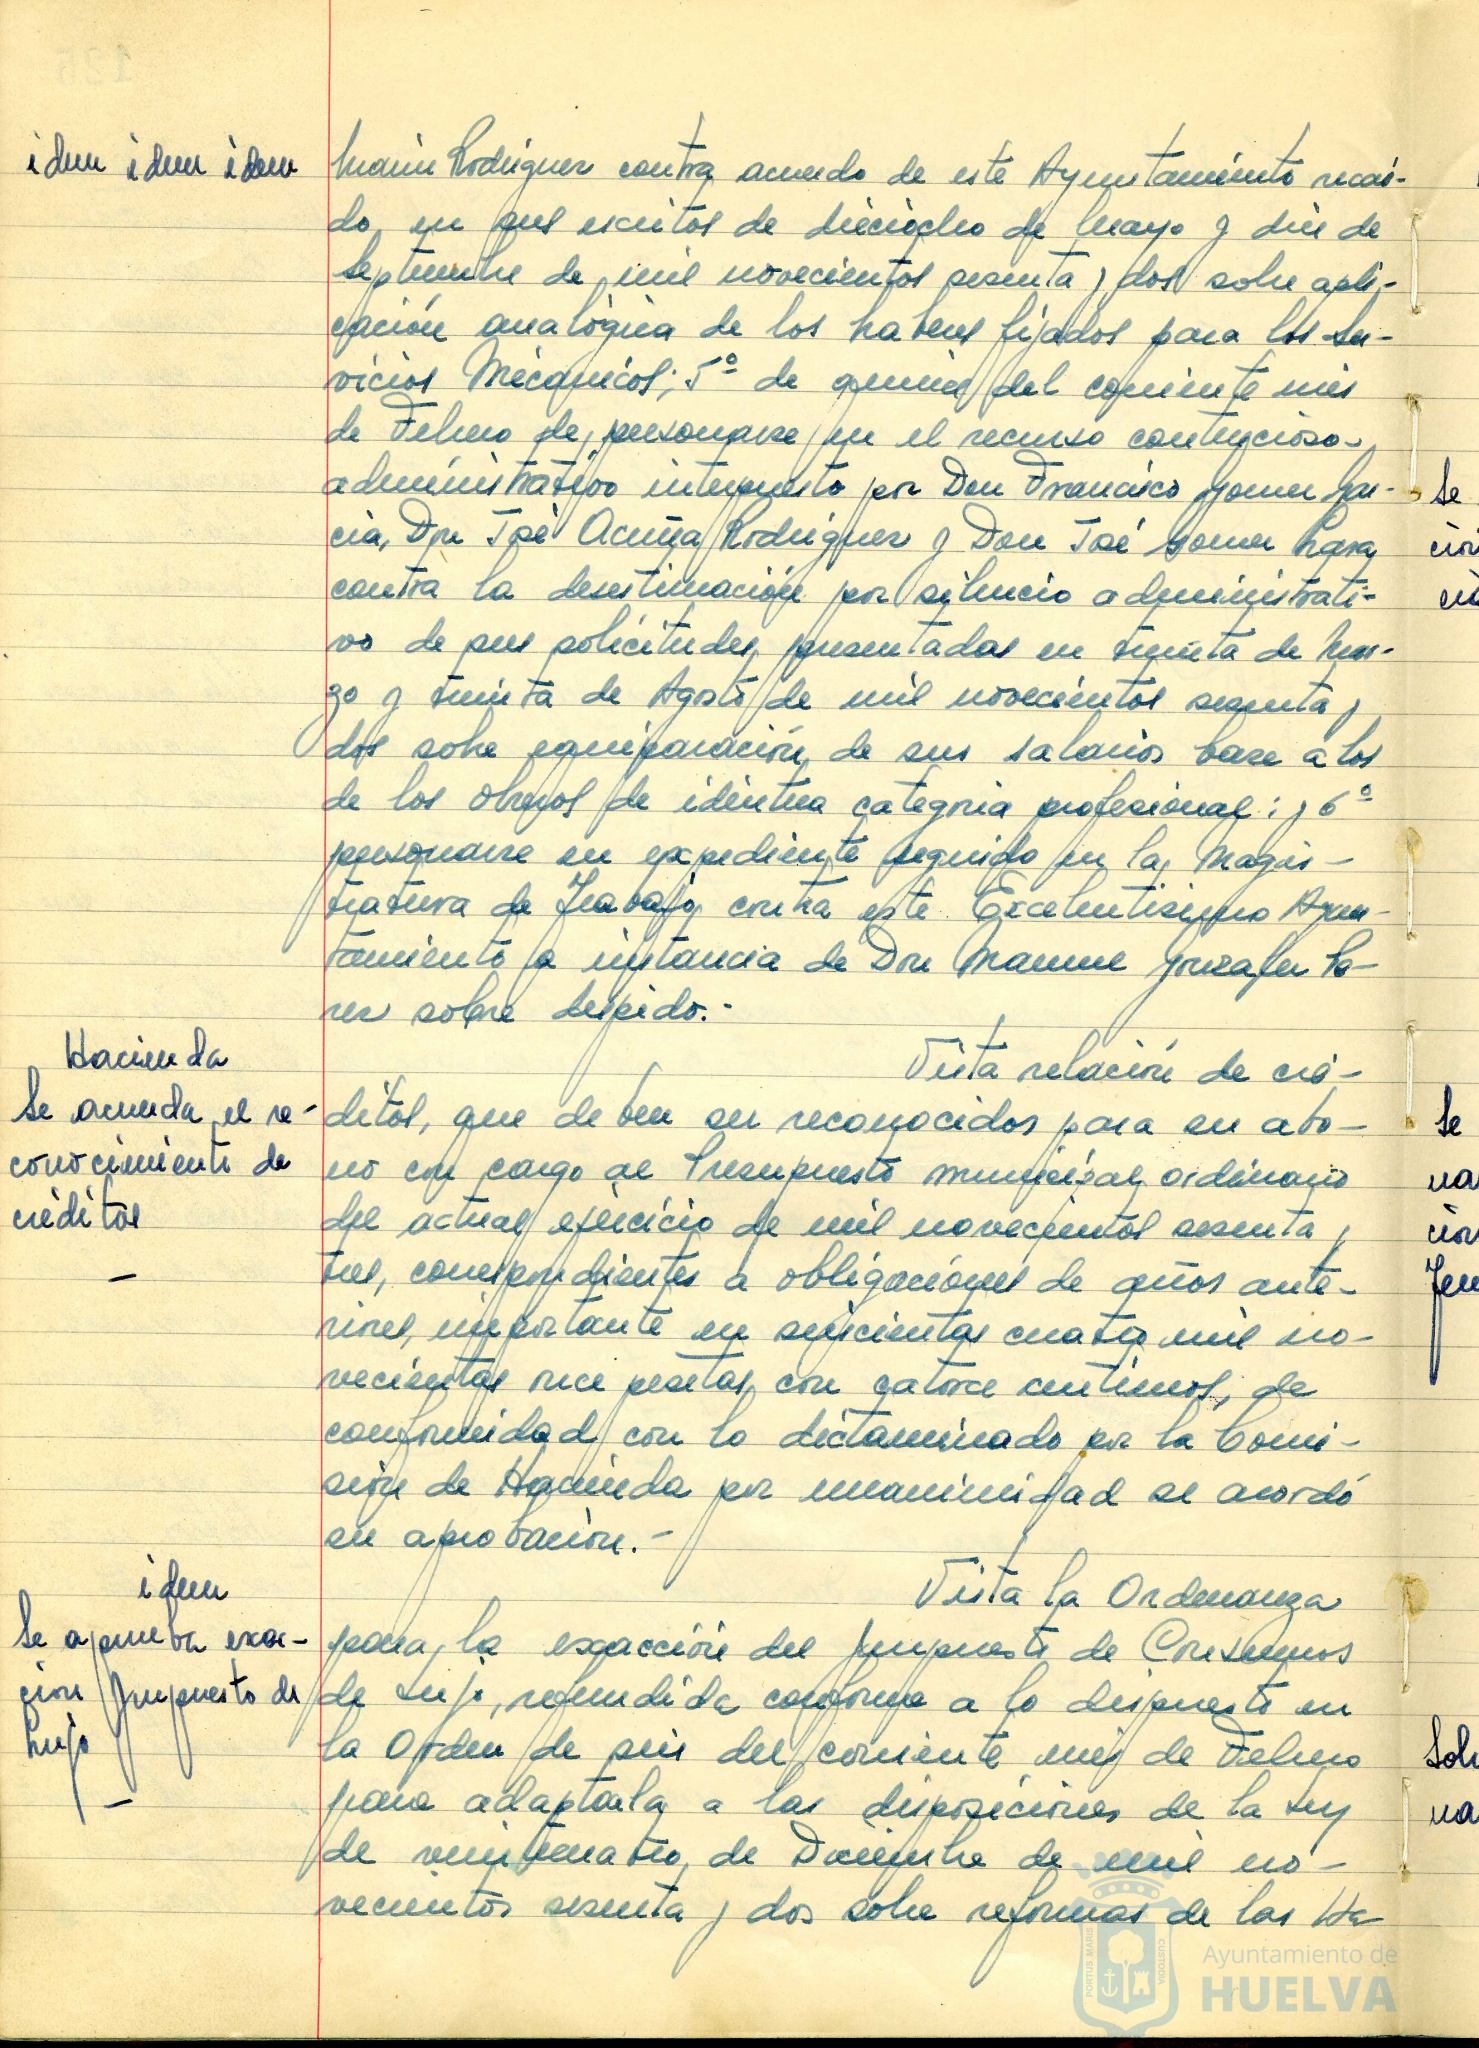 idem idem idem
Marin Rodriguez contra acuerdo de este Ayuntamiento recai-
do en sus escritos de dieciocho de Mayo y diez de
Septiembre de mil novecientos sesenta y dos sobre apli-
cación analógica de los haberes fijados para los Ser-
vicios Mecánicos; 5º de quince del corriente mes
de Febrero de personarse en el recurso contencioso-
administrativo interpuesto por Don Francisco Gomez Gar-
cia, Don José Acuña Rodriguez y Don José Gomez
contra la desestimación por silencio administrati-
vo de sus solicitudes presentadas en treinta de Mar-
zo y treinta de Agosto de mil novecientos sesenta y
dos sobre equiparación de sus salarios base a los
de los obreros de identica categoria profesional; y 6º
personarse en expediente seguido en la Magis-
tratura de Trabajo contra este Excelentisimo Ayun-
tamiento a instancia de Don Manuel Gonzalez
sobre despido.-
Hacienda
Se acuerda el re-
conocimiento de
créditos
Vista relación de cré-
ditos, que deben ser reconocidos para su abo-
no con cargo al Presupuesto municipal ordinario
del actual ejercicio de mil novecientos sesenta y
tres, correspondientes a obligaciones de años ante-
riores, importante en seiscientas cuatro mil no-
vecientas once pesetas con catorce centimos, de
conformidad con lo dictaminado por la Comi-
sión de Hacienda por unanimidad se acordó
su aprobación.-
idem
Se aprueba exac-
cion Impuesto de
lujo
Vista la Ordenanza
para la exacción del Impuesto de Consumos
de lujo, refundida conforme a lo dispuesto en
la Orden de seis del corriente mes de Febrero
para adaptarla a las disposiciones de la Ley
de veinticuatro de Diciembre de mil no-
vecientos sesenta y dos sobre reformas de las Ha-
Ayuntamiento de
HUELVA
PORTUS MARIS
CUSTODIA